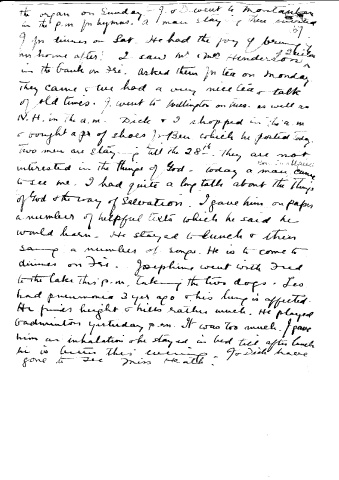 the organ on Sunday - J. & D. went to
in the p.m. for hymns. A man stay
J. for dinner on Sat. He had the joy of
him home after. I saw Mr & Mrs Henderson
in the bank on Fri. Asked them for tea on Monday
They came & we had a very nice tea & talk
of old times. J. went to Wellington on Tues. as well as
N.H. in the a.m. Dick & I shopped in the a.m
& bought a pr of shoes for Ben which he posted today.
Two men are staying till the 28th. They are not
interested in the things of God - today a man came
to see me. I had quite a long talk about the things
of God & the way of Salvation. I gave him on paper
a number of helpful texts which he said he
would learn. He stayed to lunch & then
sang a number of songs. He is to come to
dinner on Fri. Josephine went with Fred
to the lake this p.m. taking the two dogs. Leo
had pneumonia 3 yrs ago & his lung is affected.
He finds height & hills rather much. He played
badminton yesterday p.m. It was too much. I gave
him an inhalation & he stayed in bed till after lunch
he is better this evening. J. & Dick have
gone to see Miss Heath.